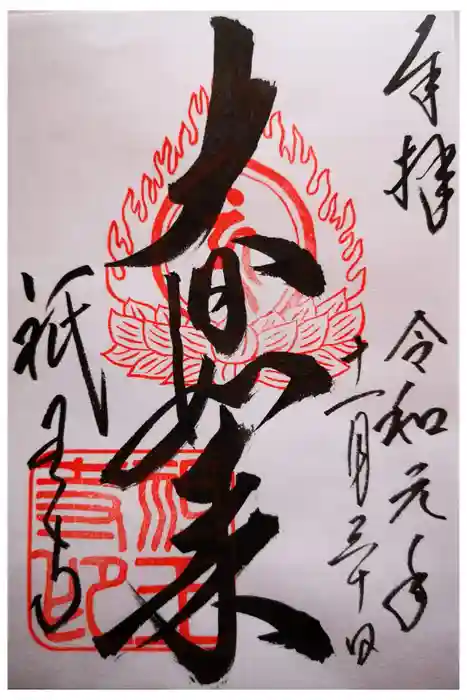 奉拝
令和元年
十一月三十日
大日如来
祇王寺